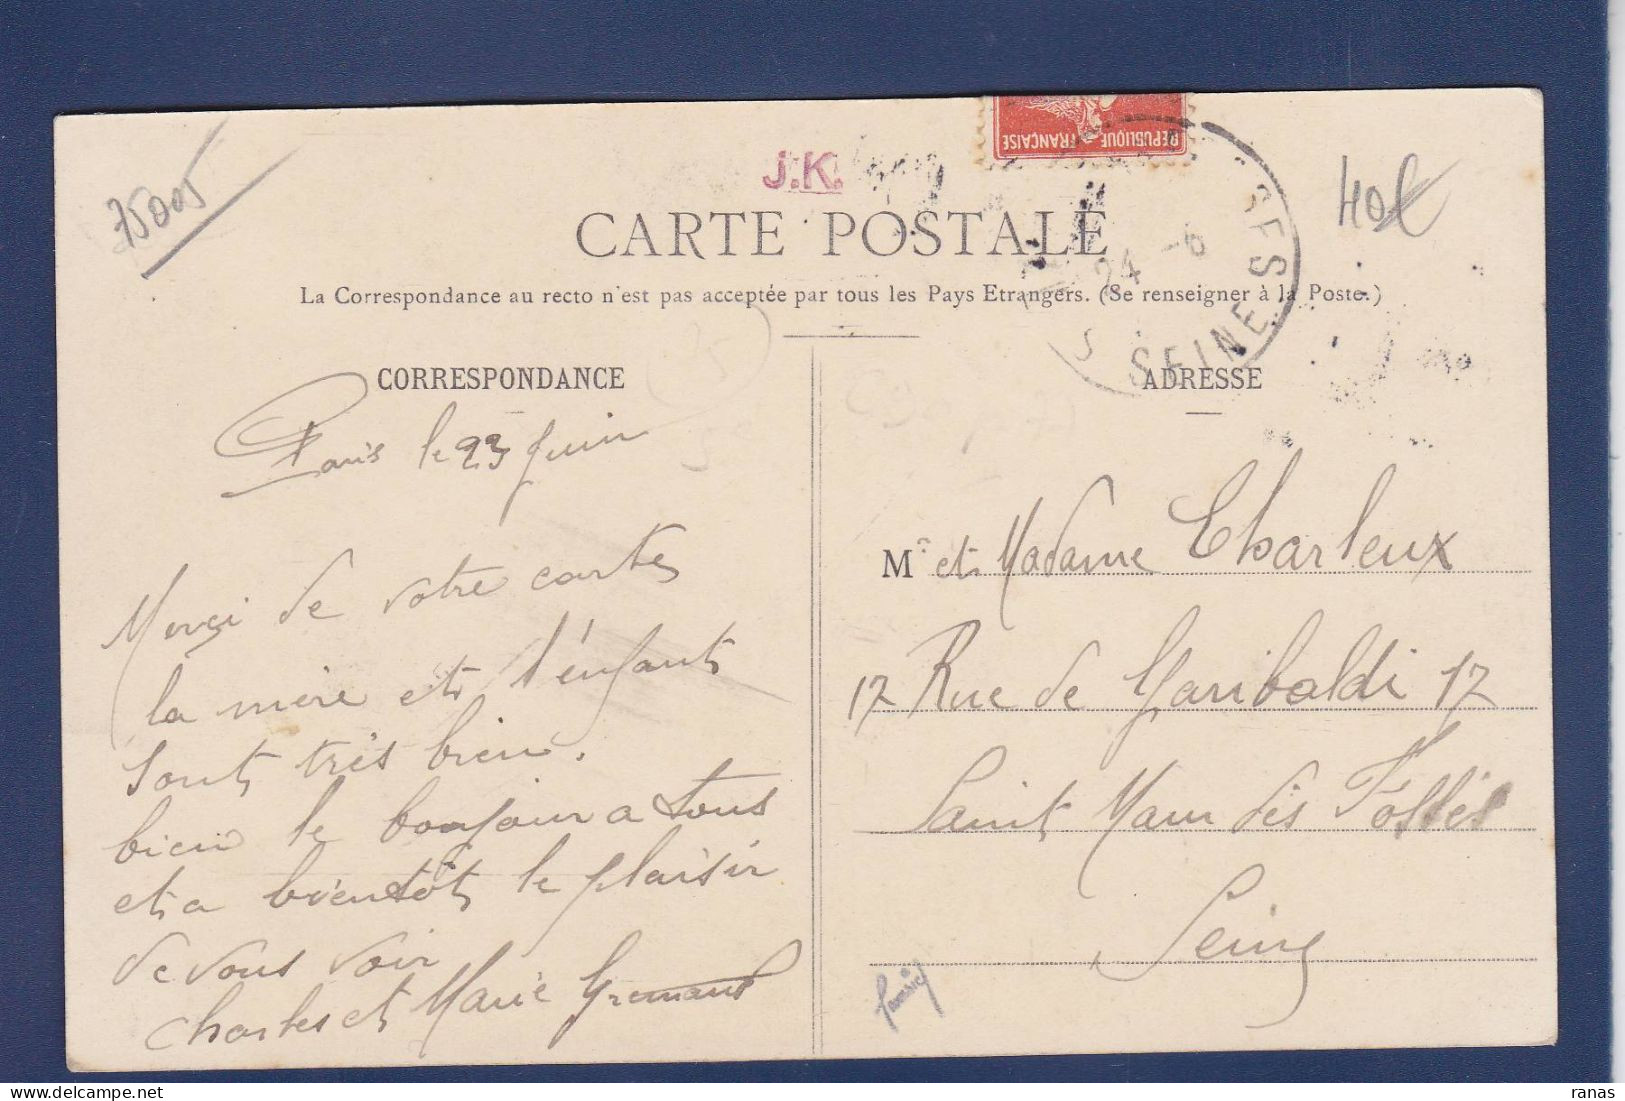 75005
J.K.
RÉPUBLIQUE FRANÇAISE
40€
CARTE POSTALE
24 -6
SEINE
La Correspondance au recto n'est pas acceptée par tous les Pays Etrangers. (Se renseigner à la Poste.)
CORRESPONDANCE
Paris le 23 Juin
Merci de votre carte
la mère et l'énfant
sont très bien.
bien le bonjour a tous
et a bientôt le plaisir
de vous voir
Charles et Marie
ADRESSE
Mr et Madame Charleux
17 Rue de Garibaldi 17
Saint Maur des Fossés
Seine
ranas